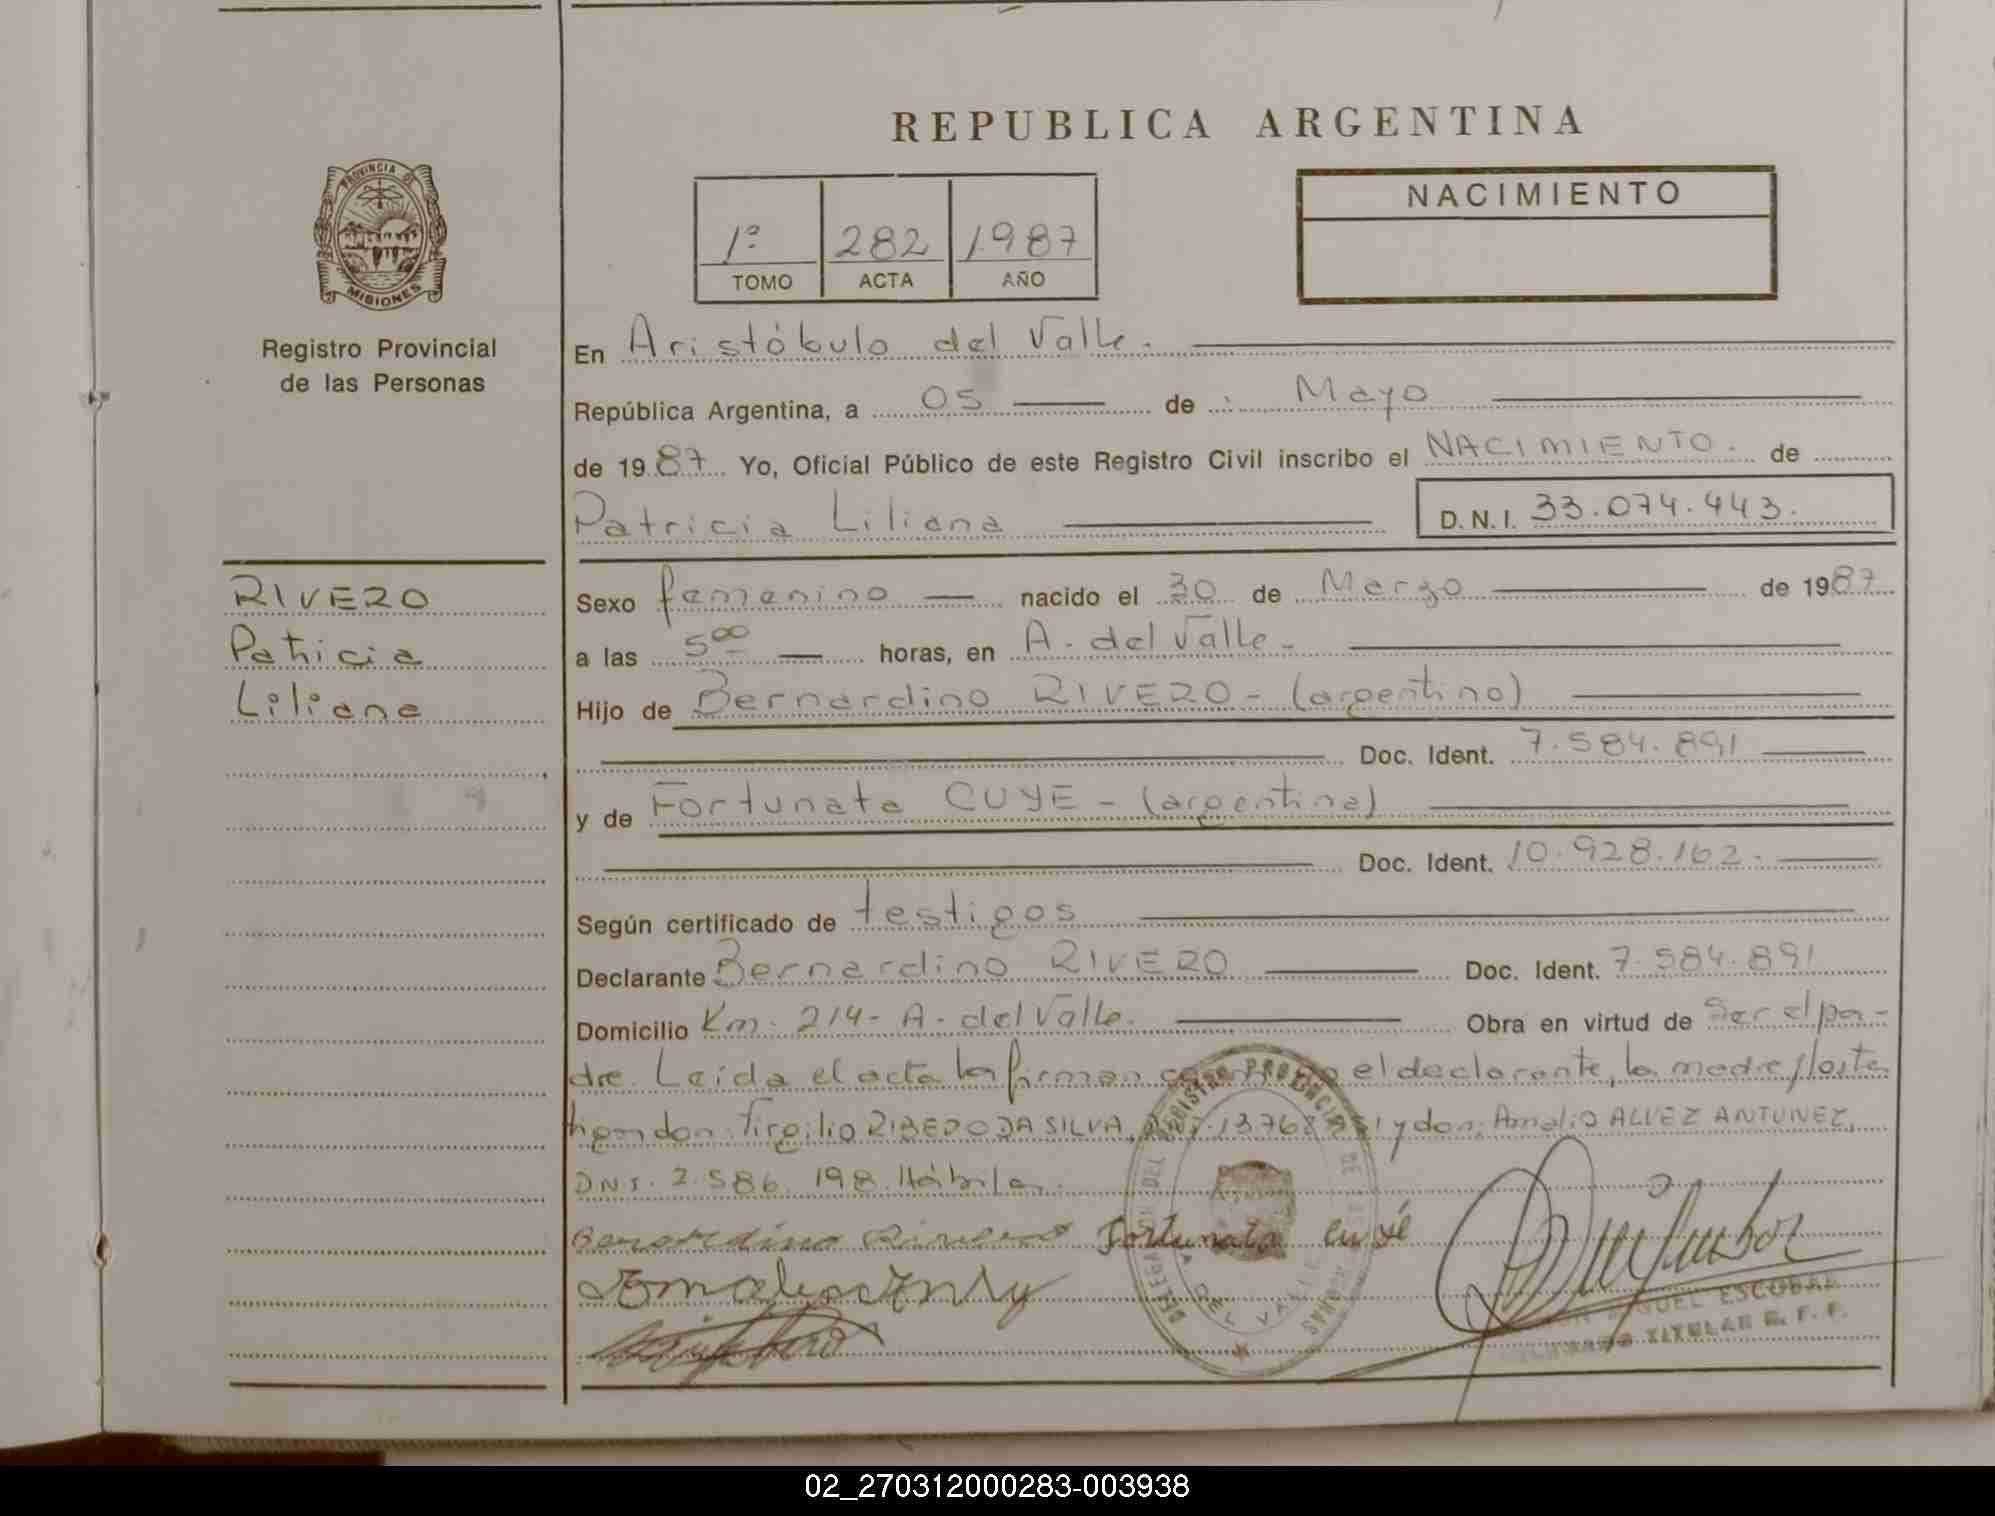 REPUBLICA ARGENTINA
PROVINCIA DE
MISIONES
Registro Provincial
de las Personas
1º 282 1987
TOMO ACTA AÑO
NACIMIENTO
En Aristóbulo del Valle.
República Argentina, a 05 de Mayo
de 1987 Yo, Oficial Público de este Registro Civil inscribo el NACIMIENTO. de
Patricia Liliana D.N.I. 33.074.443.
RIVERO
Patricia
Liliana
Sexo femenino nacido el 30 de Marzo de 1987
a las 5 00 horas, en A. del Valle -
Hijo de Bernardino RIVERO - (argentino)
Doc. Ident. 7.584.891
y de Fortunata CUYE - (argentina)
Doc. Ident. 10.928.162.
Según certificado de testigos
Declarante Bernardino RIVERO Doc. Ident. 7.584.891
Domicilio Km. 214 - A. del Valle. Obra en virtud de Ser el pa-
dre. Leida el acta la firman el declarante, la madre y los tes
tigos don: Virgilio RIBERO DA SILVA, y don: Amalio ALVEZ ANTUNEZ,
DNI. 2.586.198. Hábiles.
Bernardino Rivero Fortunata Cuyé
DEL REGISTRO PROVINCIAL DE
A. DEL VALLE
MIGUEL ESCOBAR
TITULAR R. P. P.
02_270312000283-003938